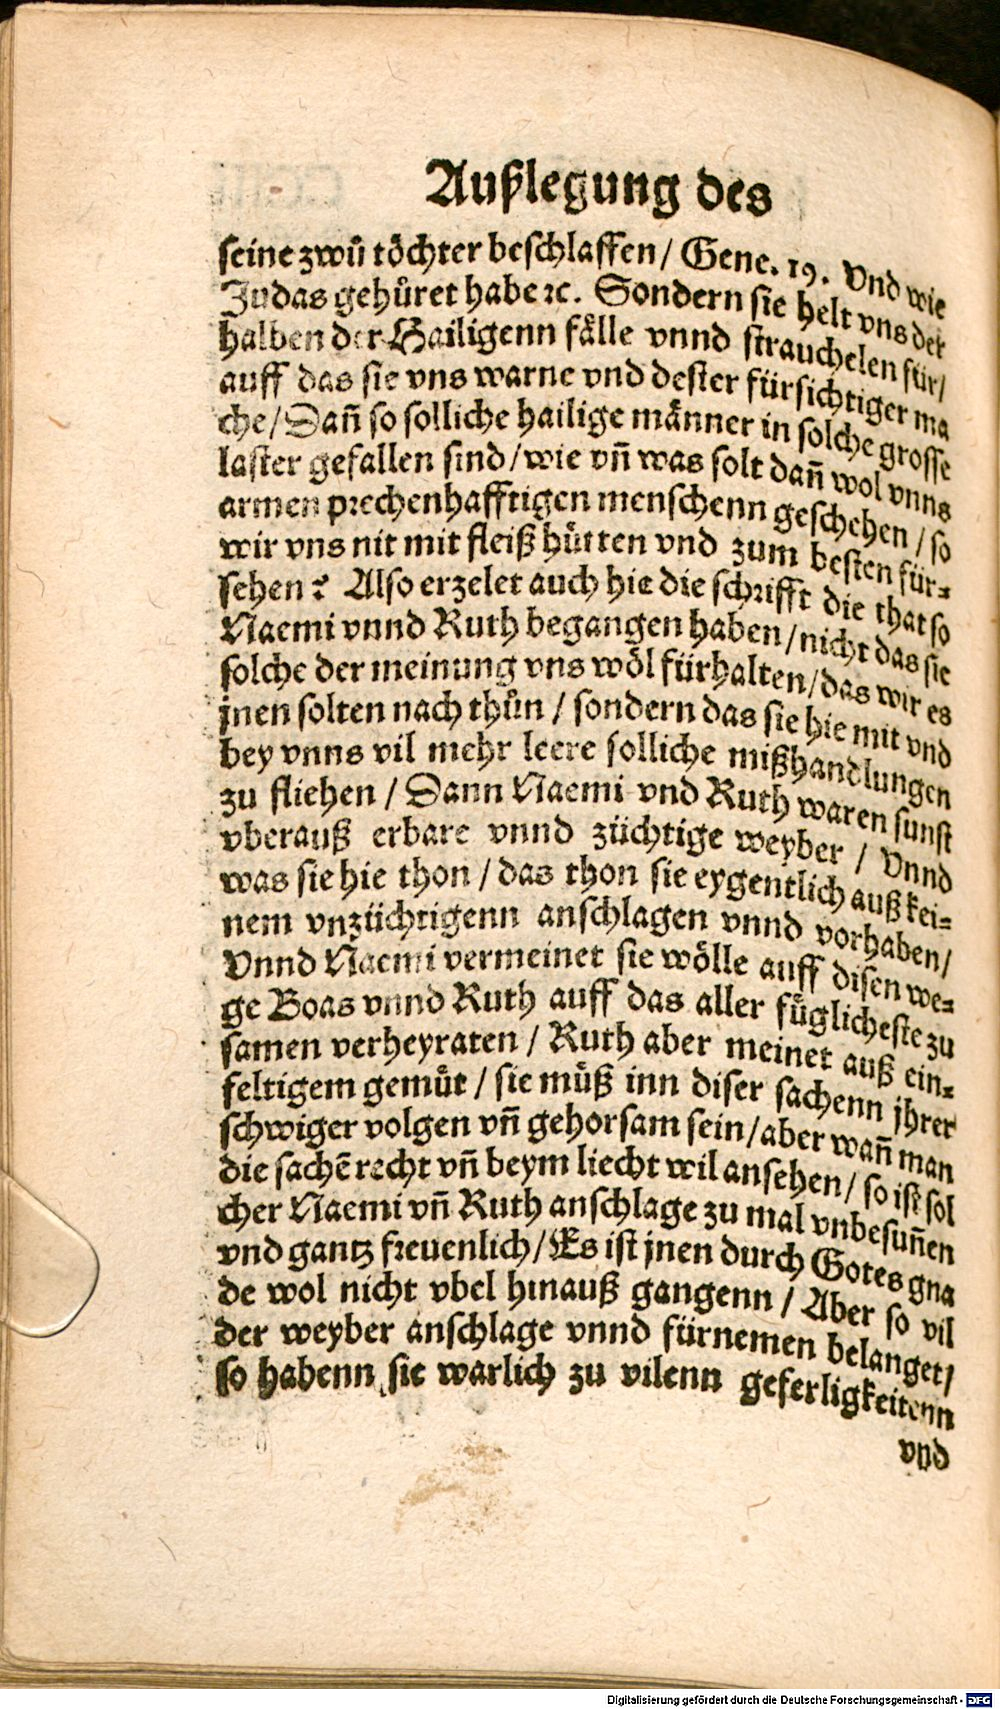 Außlegung des
seine zwů töchter beschlaffen / Gene. 19. Vnd wie
Judas gehůret habe ⁊c. Sondern sie helt vns der
halben der Hailigenn fälle vnnd strauchelen für /
auff das sie vns warne vnd dester fürsichtiger ma
che / Dañ so solliche hailige männer in solche grosse
laster gefallen sind / wie vñ was solt dañ wol vnns
armen prechenhafftigen menschenn geschehen / so
wir vns nit mit fleiß hütten vnd zum besten für-
sehen? Also erzelet auch hie die schrifft die that so
Naemi vnnd Ruth begangen haben / nicht das sie
solche der meinung vns wöl fürhalten / das wir es
jnen solten nach thůn / sondern das sie hie mit vnd
bey vnns vil mehr leere solliche mißhandlungen
zu fliehen / Dann Naemi vnd Ruth waren sunst
vberauß erbare vnnd züchtige weyber / Vnnd
was sie hie thon / das thon sie eygentlich auß kei-
nem vnzüchtigenn anschlagen vnnd vorhaben /
Vnnd Naemi vermeinet sie wölle auff disen we-
ge Boas vnnd Ruth auff das aller füglicheste zu
samen verheyraten / Ruth aber meinet auß ein-
feltigem gemüt / sie müß inn diser sachenn jhrer
schwiger volgen vñ gehorsam sein / aber wañ man
die sachē recht vñ beym liecht wil ansehen / so ist sol
cher Naemi vñ Ruth anschlage zu mal vnbesuñen
vnd gantz freuenlich / Es ist jnen durch Gotes gna
de wol nicht vbel hinauß gangenn / Aber so vil
der weyber anschlage vnnd fürnemen belanget /
so habenn sie warlich zu vilenn geferligkeitenn
vnd
Digitalisierung gefördert durch die Deutsche Forschungsgemeinschaft - DFG